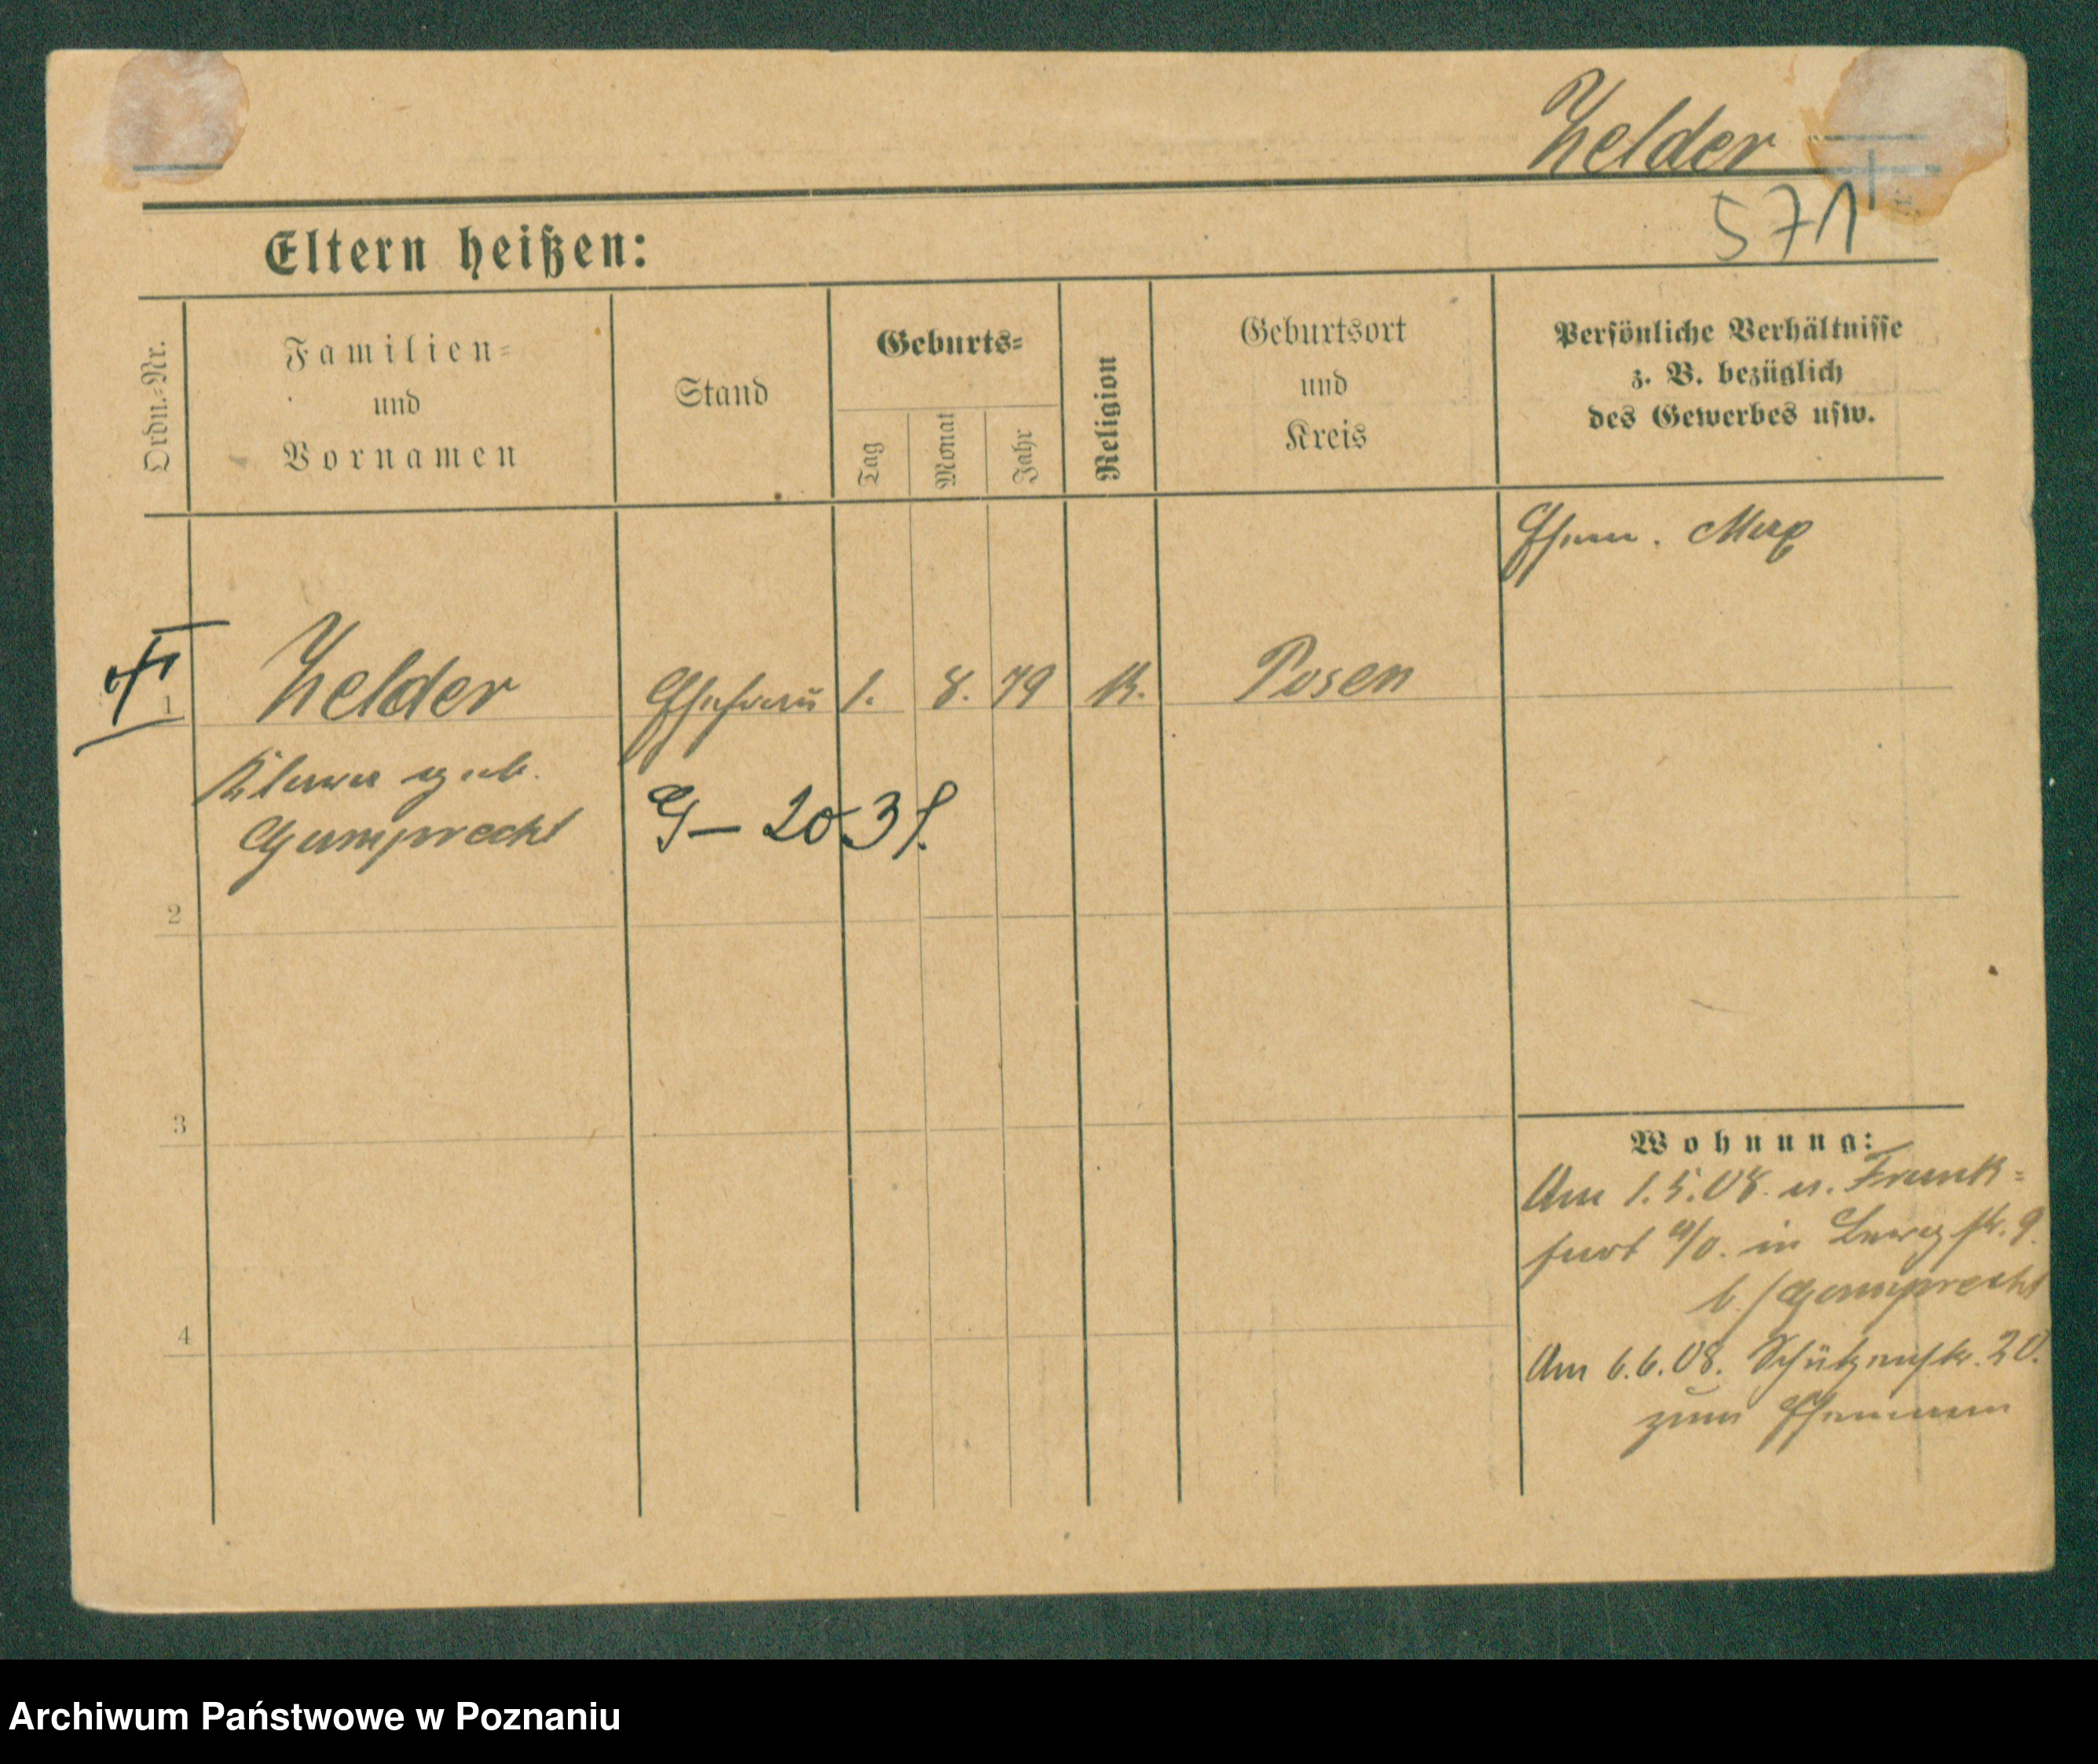 Zelder
571
Eltern heißen:
Ordn.-Nr.
Familien-
und
Vornamen
Stand
Geburts-
Tag
Monat
Jahr
Religion
Geburtsort
und
Kreis
Persönliche Verhältnisse
z. B. bezüglich
des Gewerbes usw.
Ehem. Max
1
Zelder
Ehefrau
1.
8.
79
K.
Posen
geb.
Gumprecht
G – 20.3
2
3
4
Wohnung:
Am 1.5.08. v. Frank-
furt a/O. in Langstr. 9.
b./Gumprecht
Am 6.6.08. Schützenstr. 20.
zum Ehemann
Archiwum Państwowe w Poznaniu